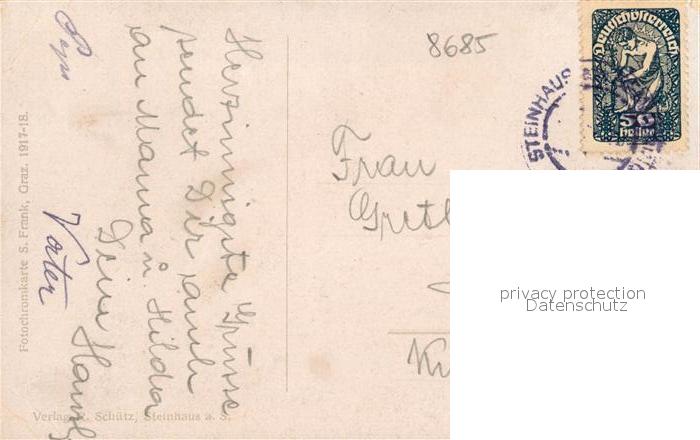 8685
Deutschösterreich
50
Heller
STEINHAUS
Herzinnigste Grüsse
sendet Dir, auch
an Mama u. Hilda
Dein
Vater
Frau
Fotochromkarte S. Frank, Graz. 1917-18.
Schütz, Steinhaus a. S.
privacy protection
Datenschutz